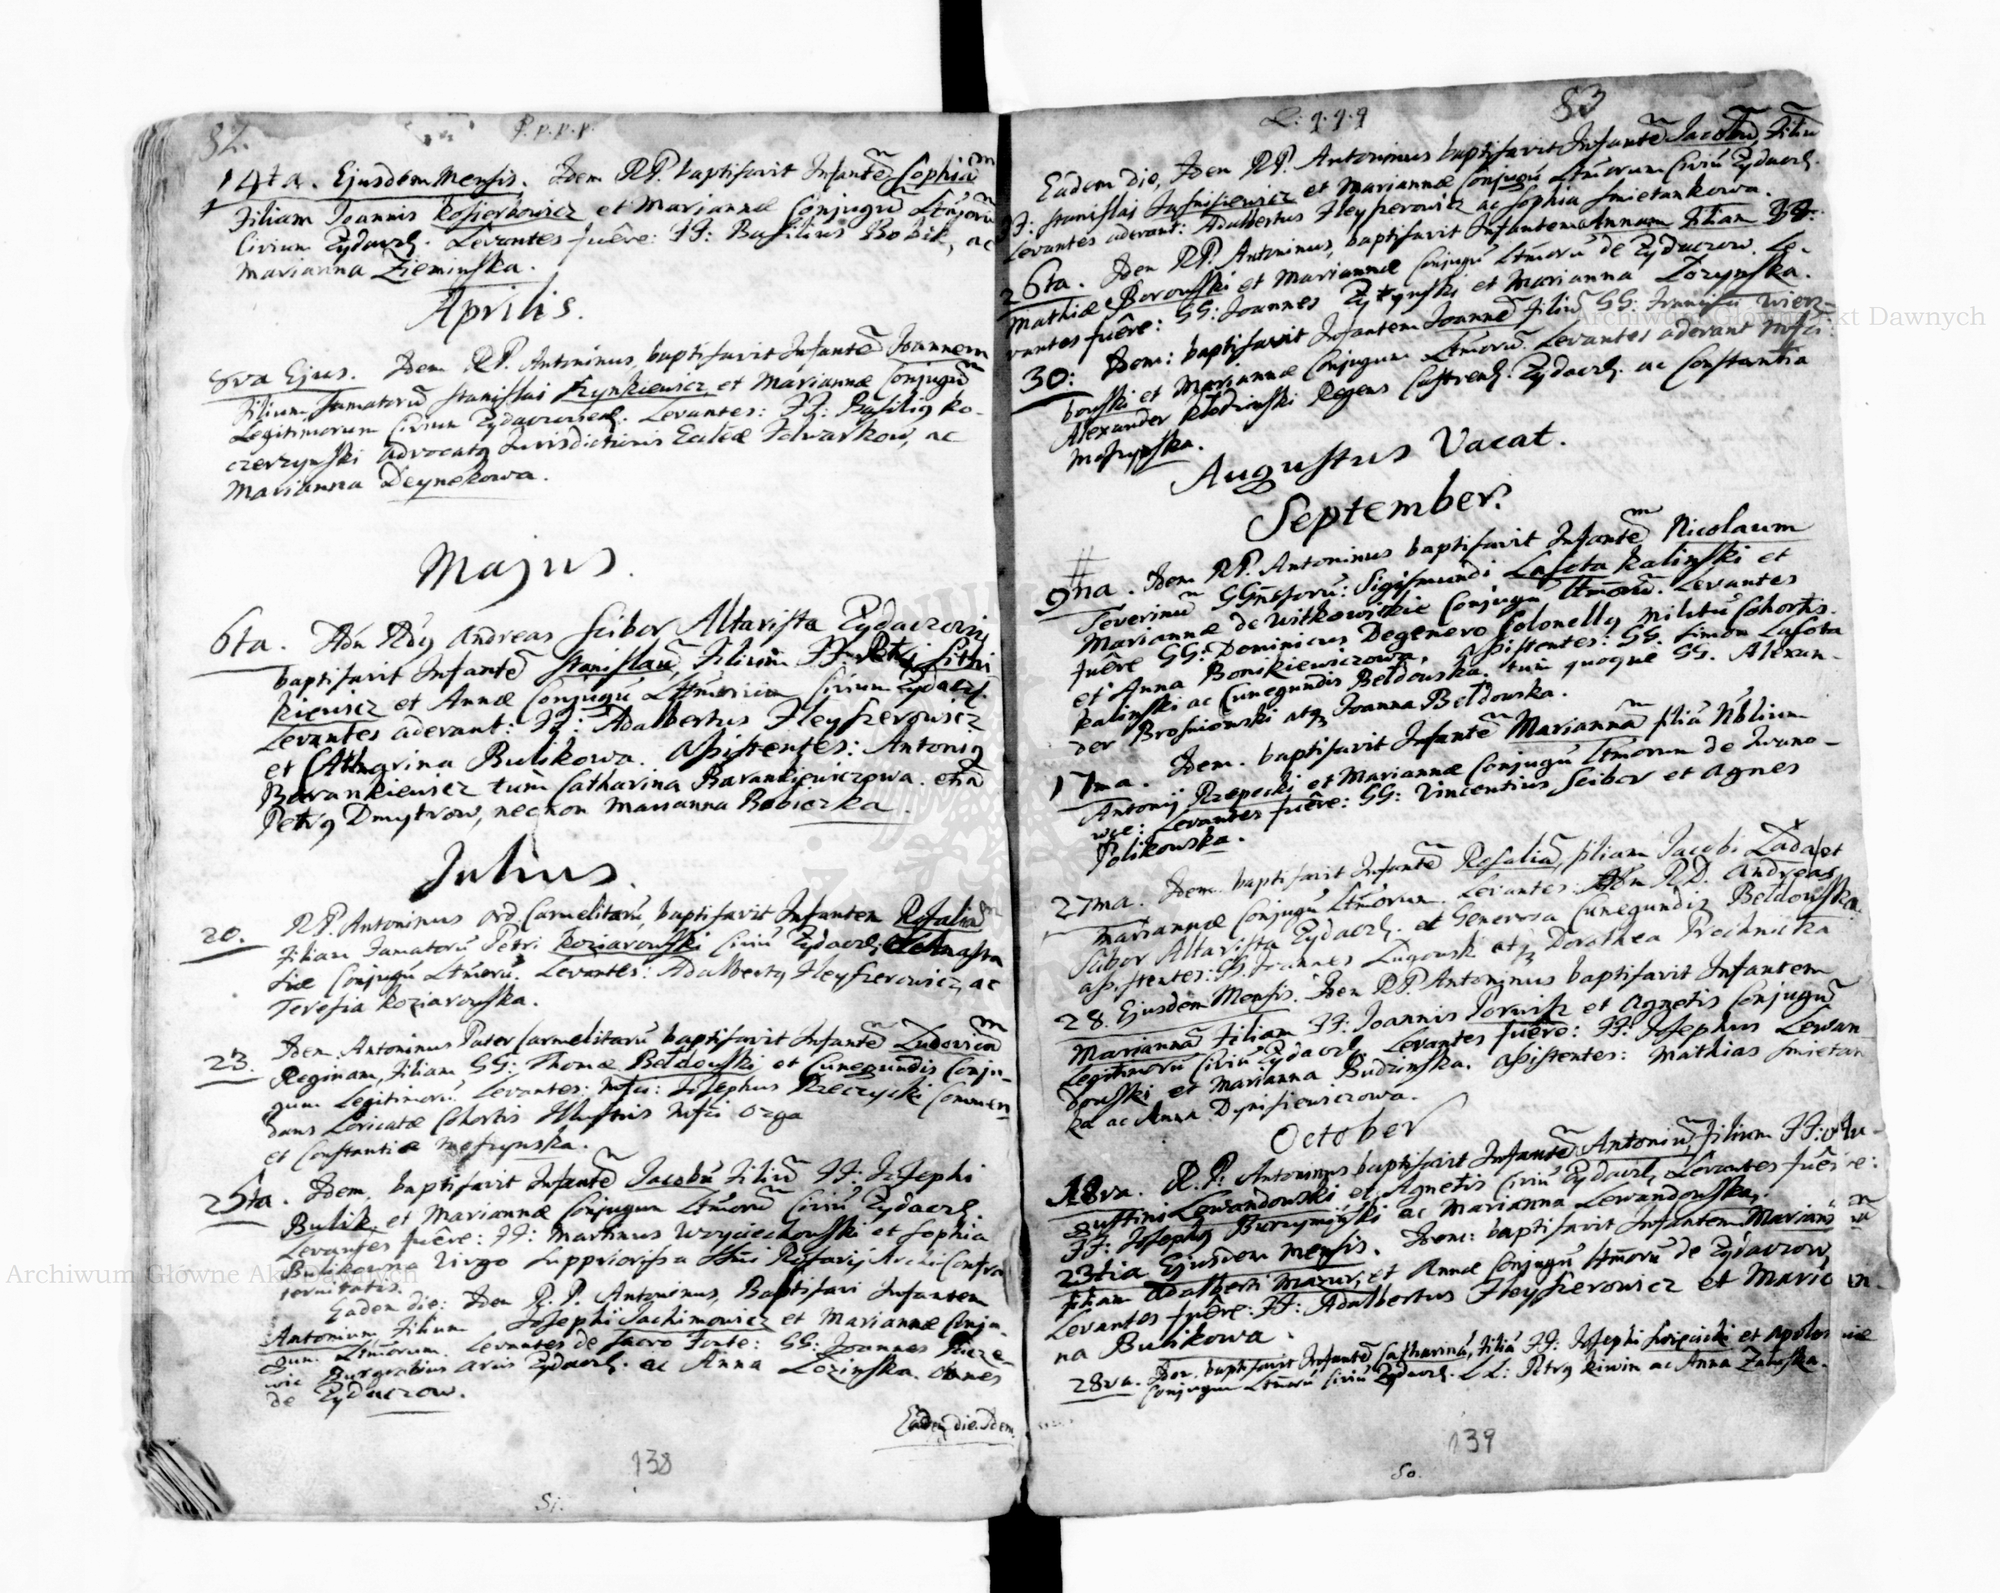 82.
P.p.p.p.
14ta. Ejusdem Mensis. Idem RP. baptisavit Infantē Sophiā
Filiam Joannis Kosierkowicz et Mariannæ Conjugū Ltmorū
Civium Zydacz. Levantes fuêre: FF: Basilius Bobik, ac
Marianna Zieminska.
Aprilis.
8va Ejus. Idem RP. Antoninus baptisavit Infantē Joannem
Filium Famatorū Stanislai Krynkiewicz et Mariannæ Conjugū
Legitimorum Civium Zydaczovien. Levantes: FF: Basilig Ko-
czerzynski advocatg Jurisdictionis Ecclēæ Folwarkow, ac
Marianna Deynekowa.
Majus.
6ta. Adm Rdg Andreas Scibor Altarista Zydaczovien
baptisavit Infantē Stanislaū, Filium FF. Petri
kiewicz et Annæ Conjugū Ltmorum Civium Zydacz.
Levantes aderant: FF: Adalbertus Heyszerowicz
et Catharina Bulikowa. Assistentes: Antonig
Barankiewicz tum Catharina Barankiewiczowa. etiā
Petrg Dmytrow, necnon Marianna Babiczka.
Julius.
20. RP. Antoninus Ord. Carmelitarū, baptisavit Infantem Rosaliam
Filiam Famatorū Petri Koziarowski Civiū Zydacz. et Anasta
siæ Conjugū Ltmorū. Levantes: Adalbertg Heyszerowicz, ac
Teresia Koziarowska.
23. Idem Antoninus Pater Carmelitarū baptisavit Infantē Ludovicā
Reginam, Filiam GG: Thomæ Bełdowski et Cunegundis Conju-
gum Legitimorū. Levantes: Mfci: Josephus Rzeczycki Commen
dans Loricatæ Cohortis Illustris Mfci Ozga
et Constantiæ Mostrynska.
25ta. Idem, baptisavit Infantē Jacobū Filiū FF: Josephi
Bulik, et Mariannæ Conjugum Ltmorū Civiū Zydacz.
Levantes fuêre: FF: Martinus Woyciechowski et Sophia
Bulikowna Virgo Suppriorissa Stmi Rosarij Archi Confra
ternitatis.
Eadem die: Idem R. P. Antoninus, Baptisavi Infantem
Antonium Filium Josephi Jachimowicz et Mariannæ Conju-
gum Ltmorum. Levantes de Sacro Fonte: GG: Joannes
wic Burgrabius Arcis Zydacz. ac Anna Lozinska. Omnes
de Zydaczow.
Eadem die. Idem.
138
Si.
L: q.q.q
83
Eadem die, Idem RP. Antoninus baptisavit Infantē Jacobū, Filiū
FF: Stanislai Jasnisiewicz et Mariannæ Conjugū Ltmorum Civiū Zydacz.
Levantes aderant: Adalbertus Heyszerowicz ac Sophia Smietankowa.
26ta. Idem RP. Antoninus, baptisavit Infantem Annam Filiam GG:
Mathiæ Borowski et Mariannæ Conjugū Ltmorū de Zydaczow. Le-
vantes fuêre: GG: Joannes Zyżynski et Marianna Lozynska.
30: Idem: baptisavit Infantem Joannē Filiū GG: Francisci Wierz-
bowski et Mariannæ Conjugum Ltmorū. Levantes aderant Mfci:
Alexander Kłodzinski Regens Castrens. Zydacz. ac Constantia
Mostrynska.
Augustus Vacat.
September.
9na. Idem RP. Antoninus baptisavit Infantē Nicolaum
Severinū GGnosorū: Sigismundi Lasota Kalinski et
Mariannæ de Witkowskie Conjugū Ltmorū. Levantes
fuêre GG: Dominicus Degenero Colonellg Militū Cohortis.
et Anna Bonikiewiczowa. Assistentes: GG. Simon Lasota
Kalinski ac Cunegundis Bełdowska. tum quoque GG. Alexan-
der Brosniowski atq Joanna Bełdowska.
17ma. Idem. baptisavit Infantē Mariannā filiā Nblium
Antonij Rzepecki et Mariannæ Conjugū Ltmorum de Iwano-
wce: Levantes fuêre: GG: Vincentius Scibor et Agnes
Polikowska.
27ma. Idem. baptisavit Infantē Rosaliā, filiam Jacobi Zada, et
Mariannæ Conjugū Ltmorum. Levantes: Adm R.D. Andreas
Scibor Altarista Zydacz. et Generosa Cunegundis Bełdowska.
assistentes: G. Joannes Lugowsk atq Dorothea Prochnicka
28. Ejusdem Mensis. Idem RP. Antoninus baptisavit Infantem
Mariannā filiam FF: Joannis Porwisz et Agnetis Conjugū
Legitimorū Civiū Zydacz. Levantes fuêre: FF: Josephus Lewan
dowski et Marianna Budzinska. Assistentes: Mathias Smietan
ka ac Anna Dynisiewiczowa.
October
18va. R. P. Antoninus baptisavit Infantē Antoniū Filium FF: Au-
gustini Lewandowski et Agnetis Civiū Zydacz. Levantes fuêre:
FF: Josephg Burzyminski ac Marianna Lewandowska.
23tia Ejusdem Mensis. Idem: baptisavit Infantem Mariannā
filiam Adalberti Mazur, et Annæ Conjugū Ltmorū de Zydaczow
Levantes fuêre: FF: Adalbertus Heyszerowicz et Marian
na Bulikowa.
28va. Idem. baptisavit Infantē Catharinā, Filiā FF: Josephi et Apoloniæ
Conjugum Ltmorū Civiū Zydacz. LL: Petrg Kiwin ac Anna Zalwska.
139
So.
Archiwum Główne Akt Dawnych
Archiwum Główne Akt Dawnych